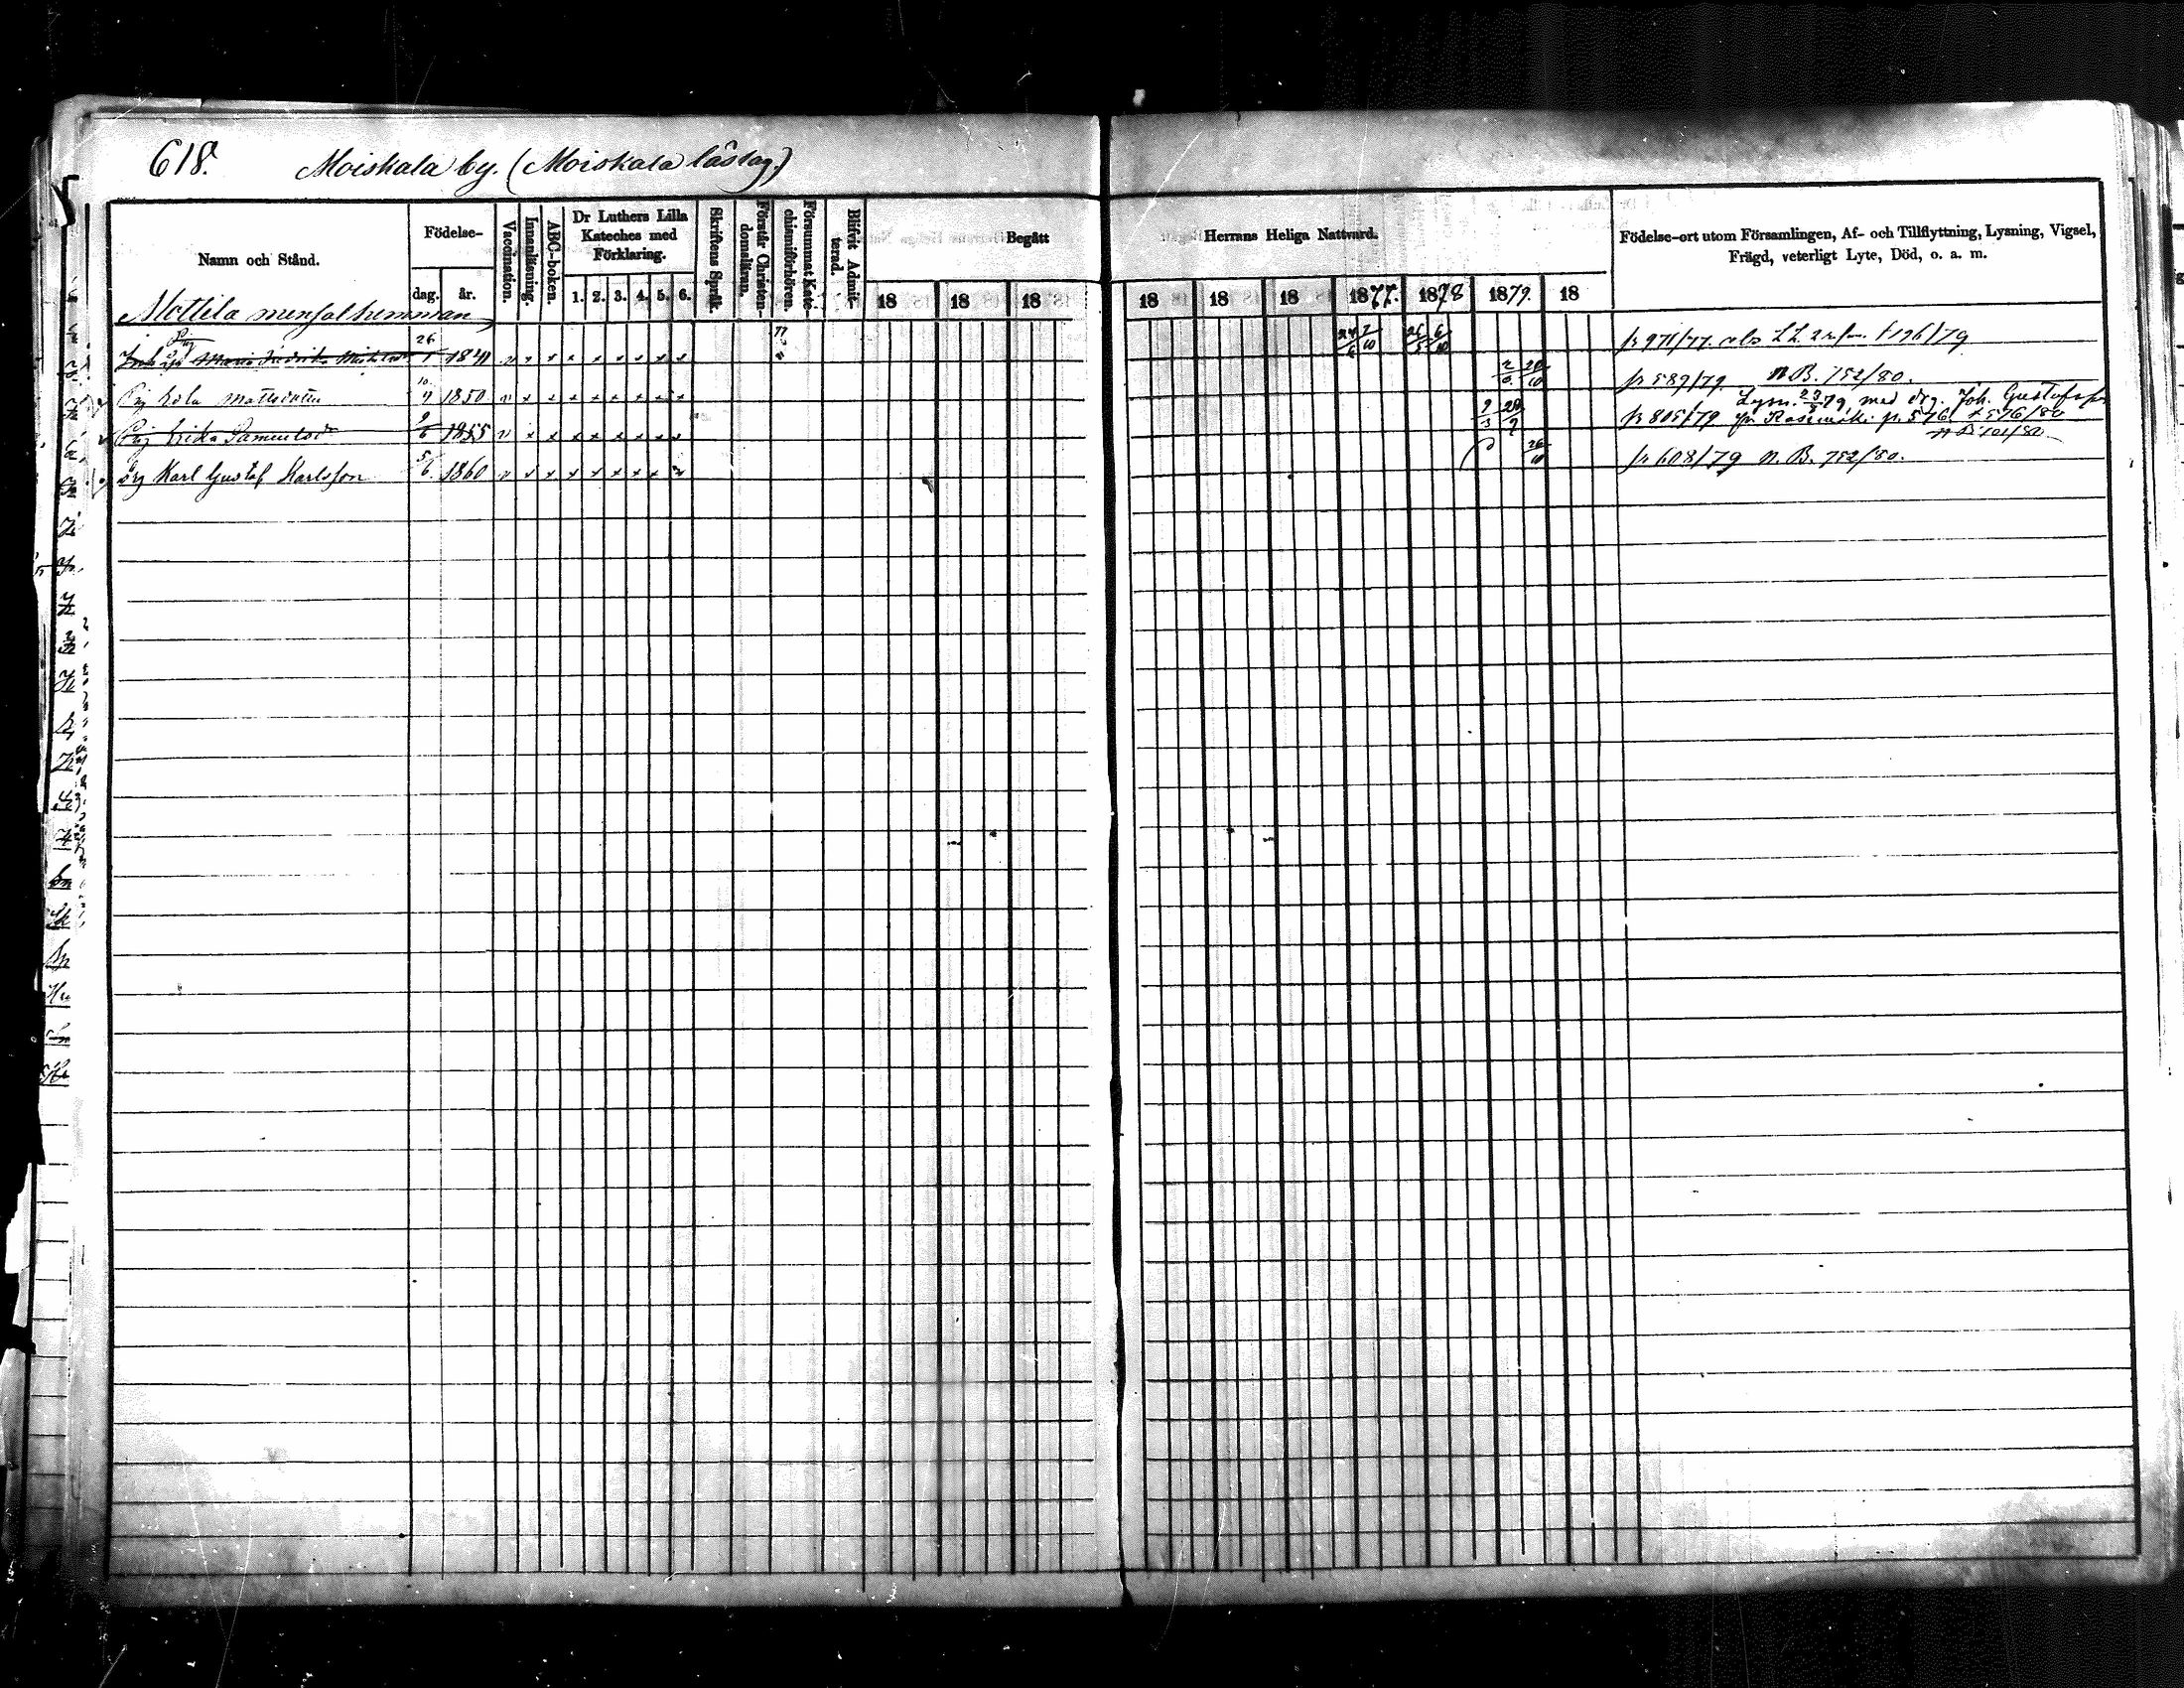 618. Moiskala by. (Moiskala läslag.)
Namn och Stånd.
Födelse-
dag. år.
Vaccination.
Innanläsning.
ABC-boken.
Dr Luthers Lilla
Kateches med
Förklaring.
1. 2. 3. 4. 5. 6.
Skriftens Språk.
Förstår Christen-
domsläran.
Försummat Kate-
chismiförhören.
Blifvit Admit-
terad.
Begått
Herrans Heliga Nattvard.
18 18 18
18 18 18 1877. 1878 1879. 18
Födelse-ort utom Församlingen, Af- och Tillflyttning, Lysning, Vigsel,
Frägd, veterligt Lyte, Död, o. a. m.
Mottila mensalhemman
Pig
Maria Fredrika 26/1 1841 77 24/6 7/10 26/5 6/10 fr 971/77. f 196/79
Pig Lola Mattsdotter 10/4 1850 fr 589/79 N.B. 752/80.
Pig Erika Samuelsdr 9/6 1855 9/3 28/9 fr 805/79 Lysn. 23/ 79 med drg. Joh. Gustafsson
576/80
drg Karl Gustaf Karlsson 5/6. 1860 26/10 fr 608/79 n. B. 752/80.